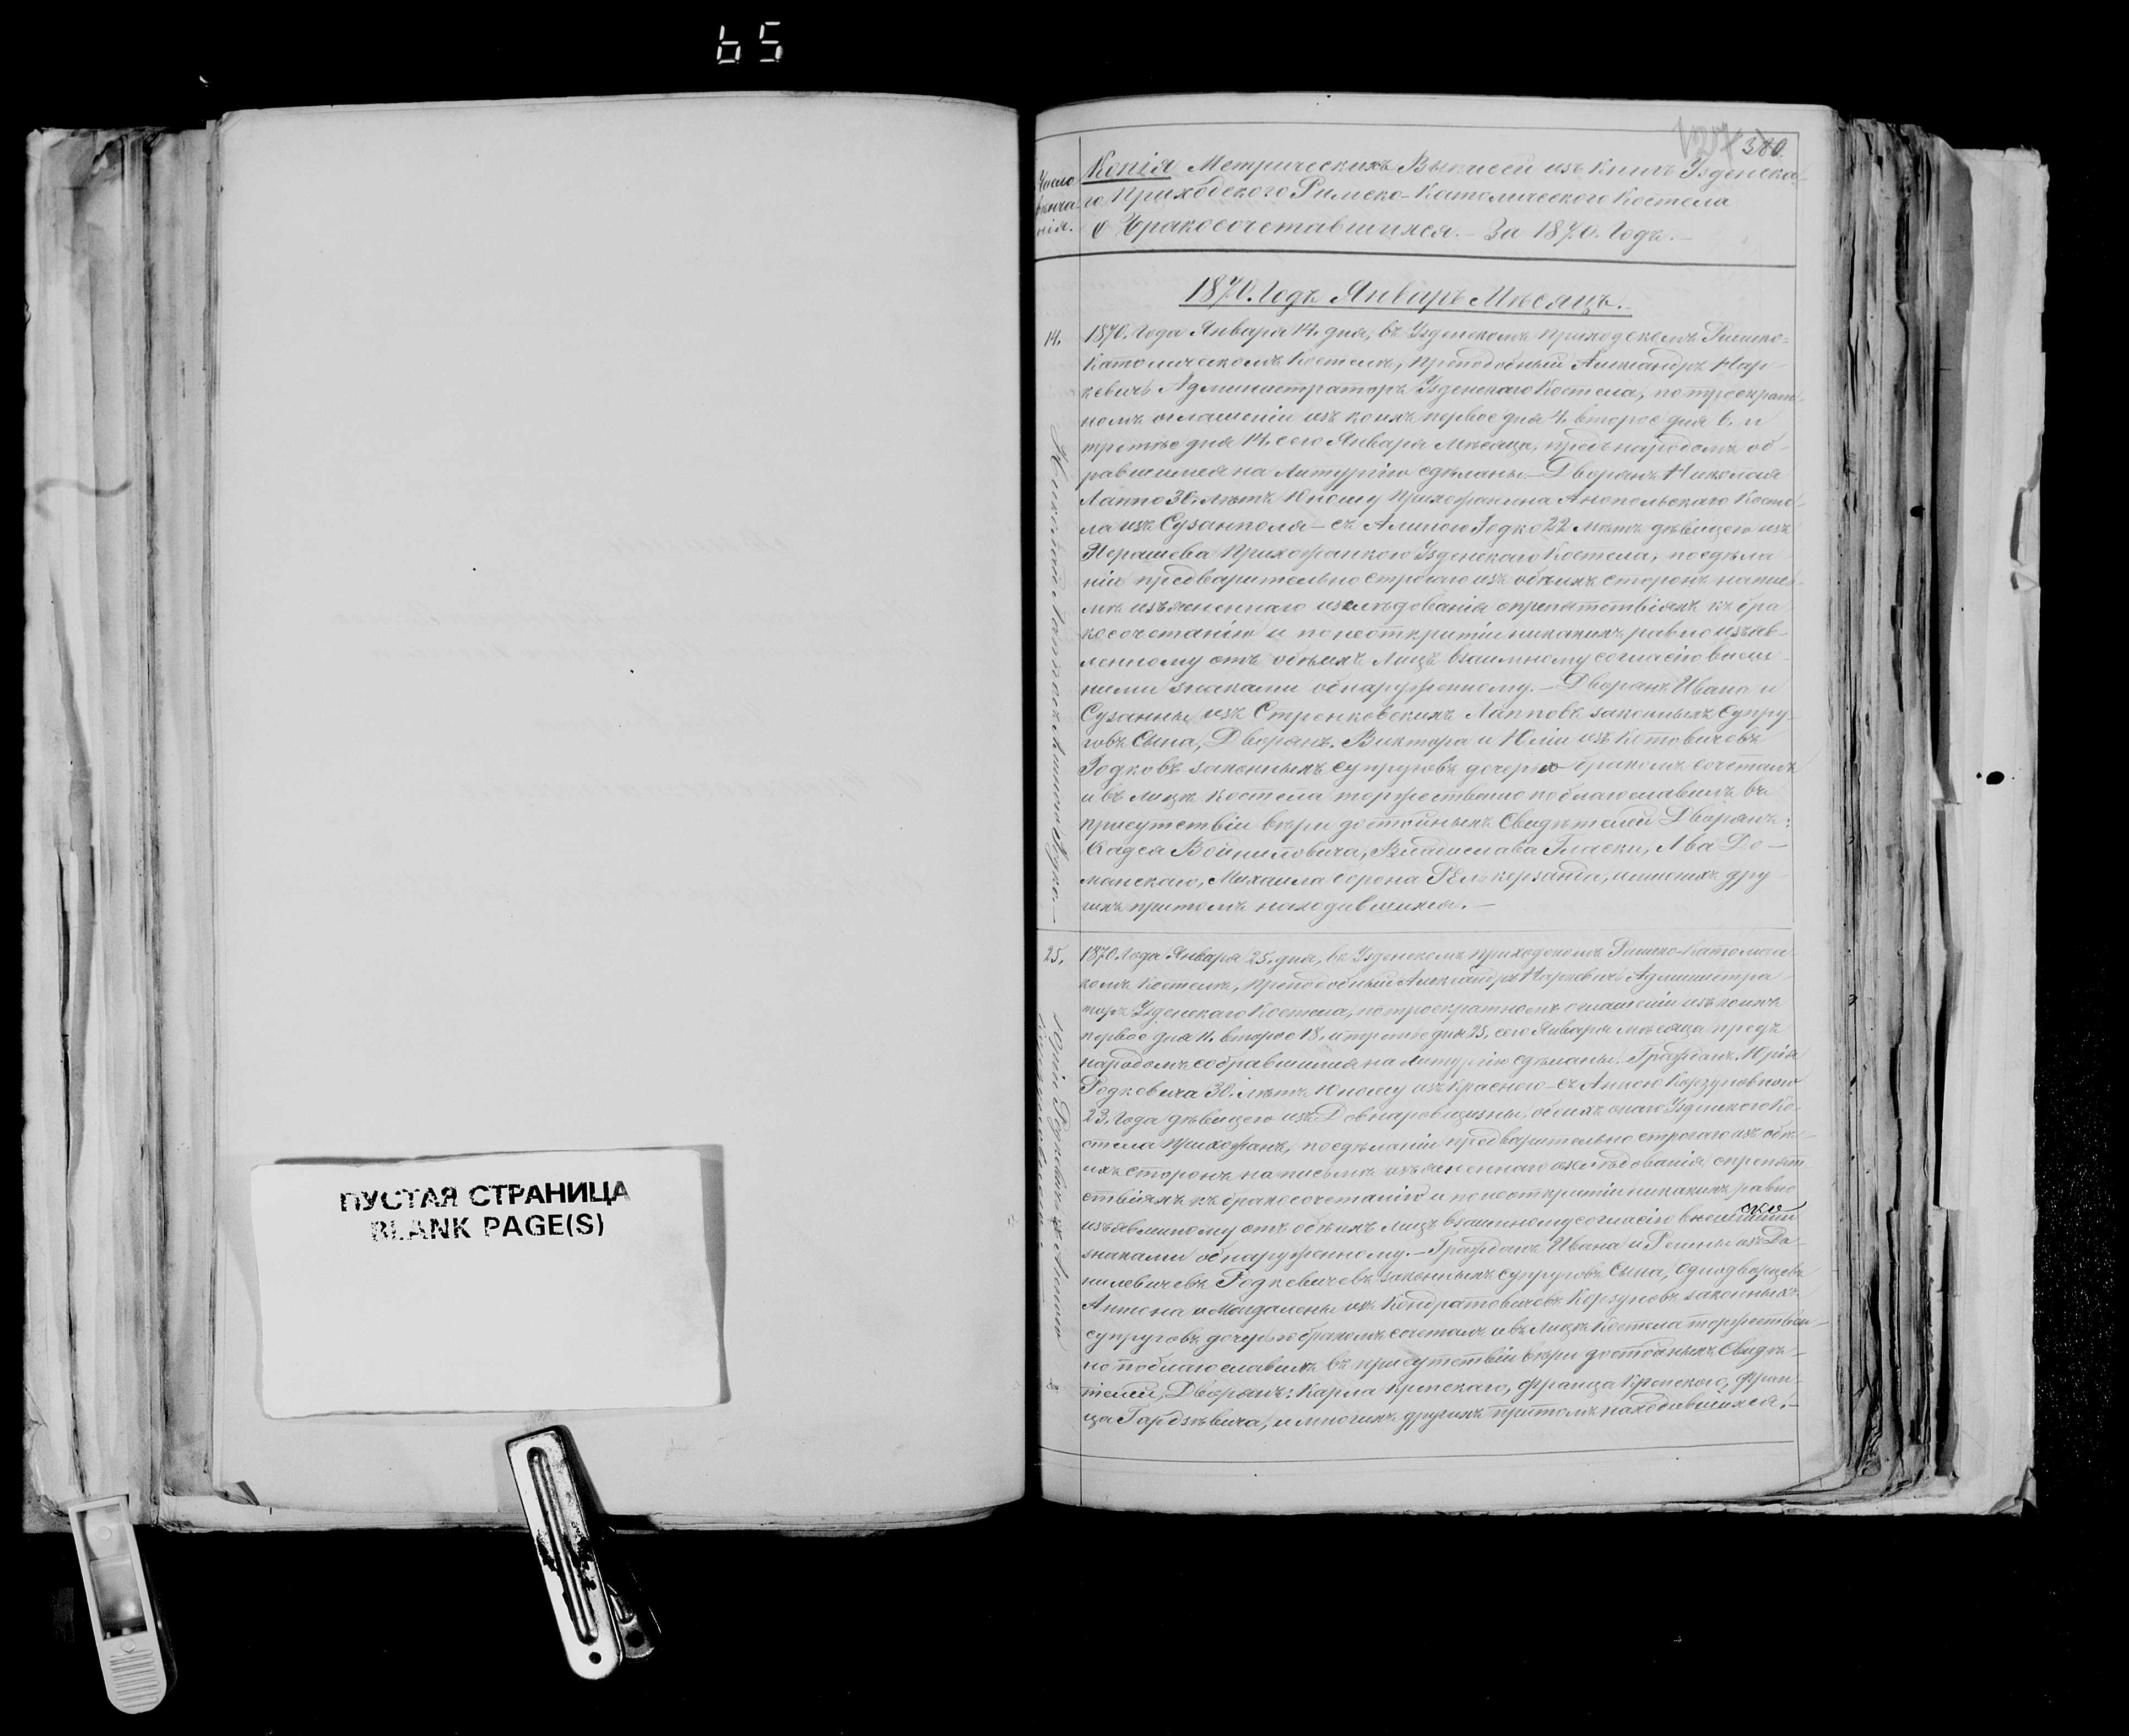 65
ПУСТАЯ СТРАНИЦА
BLANK PAGE(S)
127 380.
Число
вѣнча
нія.
Копія Метрическихъ Выписей изъ книгъ Узденска-
го Приходского Римско-Католическаго Костела
о Бракосочетавшихся. – За 1870. Годъ. –
1870. Годъ Январь Мѣсяцъ. –
14.
Николай Лаппо съ Алиною Зодко. –
1870. Года Января 14. дня, въ Узденскомъ Приходскомъ Римско-
Католическомъ Костелѣ, Преподобный Александръ Нар-
кевичъ Администраторъ Узденскаго Костела, по троекрат-
номъ оглашеніи изъ коихъ первое дня 4. второе дня 6. и
третье дня 14. сего Января Мѣсяца, предъ народомъ об-
равшимся на Литургію сдѣланы. – Дворянъ Николая
Лаппо 30. лѣтъ Юношу Прихожанина Анопольскаго Косте-
ла изъ Сузанполя – съ Алиною Зодко 22 лѣтъ дѣвицею изъ
Перашева Прихожанкою Узденскаго Костела, по сдѣла
ніи предварительно строгаго изъ обѣихъ сторонъ на пись-
мѣ изъясненнаго изслѣдованія о препятствіяхъ къ бра-
косочетанію и по неоткрытіи никакихъ равно изъяв-
ленному отъ обѣихъ Лицъ взаимному согласію внѣш-
ними знаками обнаруженному. – Дворянъ Ивана и
Сузанны изъ Стронковскихъ Лапповъ законныхъ Супру-
говъ Сына, Дворянъ. Виктора и Юліи изъ Котовичовъ
Зодковъ законныхъ супруговъ дочерью – бракомъ сочеталъ
и въ лицѣ Костела торжественно поблагославилъ въ
присутствіи вѣры достойныхъ Свидѣтелей Дворянъ:
Войниловича, Владислава Гласки, Льва До-
манскаго, Михаила и многихъ дру-
гихъ притомъ находившихся. –
25.
Юрій Родкевичъ съ Анною
1870. Года Января 25. дня, въ Узденскомъ Приходскомъ Римско-Католичес
комъ Костелѣ, Преподобный Александръ Наркевичъ Администра-
торъ Узденскаго Костела, по троекратномъ оглашеніи изъ коихъ
первое дня 11. второе 18. и третье дня 25. сего Января мѣсяца предъ
народомъ собравшимся на Литургію сдѣланы. – Гражданъ. Юрія
Родкевича 30. лѣтъ Юношу изъ Красного – съ Анною Корзуновною
23. Года дѣвицею изъ Довнаровщизны, обоихъ онаго Узденскаго Ко-
стела Прихожанъ, по сдѣланіи предварительно строгаго изъ обѣ-
ихъ сторонъ на письмѣ изъясненнаго изслѣдованія о препят-
ствіяхъ къ бракосочетанію и по неоткрытіи никакихъ равно
изъявленному отъ обѣихъ лицъ взаимному согласію внѣшними
знаками обнаруженному. – Гражданъ Ивана и изъ Да-
нилевичевъ Родкевичевъ законныхъ супруговъ Сына, Однодворцевъ
Антона и Магдалены изъ Кондратовичовъ Корзуновъ законныхъ
супруговъ дочерью бракомъ сочеталъ и въ Лицѣ Костела торжествен-
но поблагославилъ въ присутствіи вѣры достойныхъ Свидѣ-
телей, Дворянъ: Карла Крепскаго, Франца Крепскаго, Фран-
ца и многихъ другихъ притомъ находившихся. –